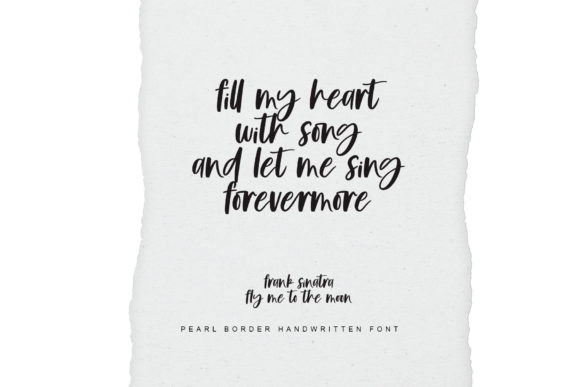 fill my heart
with song
and let me sing
forevermore
frank sinatra
fly me to the moon
PEARL BORDER HANDWRITTEN FONT